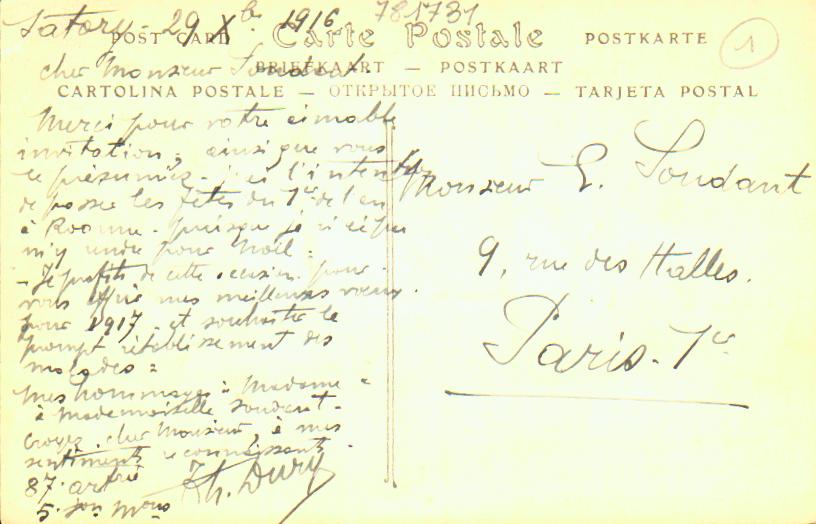 781731
1
Satory - 29 Xbre 1916
POST CARD Carte Postale POSTKARTE
BRIEFKAART — POSTKAART
CARTOLINA POSTALE — ОТКРЫТОЕ ПИСЬМО — TARJETA POSTAL
cher Monsieur Soudant.
Merci pour votre aimable
invitation, ainsi que vous
le présumiez - j'ai l'intention
de passer les fêtes du 1er de l'an
à Roanne - puisque je n'ai pu
m'y rendre pour Noël =
- Je profite de cette occasion pour
vous offrir mes meilleurs voeux
pour 1917 - et souhaiter le
prompt rétablissement des
malades =
Mes hommages à Madame -
à Mademoiselle Soudant -
Croyez, cher Monsieur, à mes
sentiments reconnaissants
87. artrie
5.
Dury
Monsieur E. Soudant
9, rue des Halles.
Paris - 1er